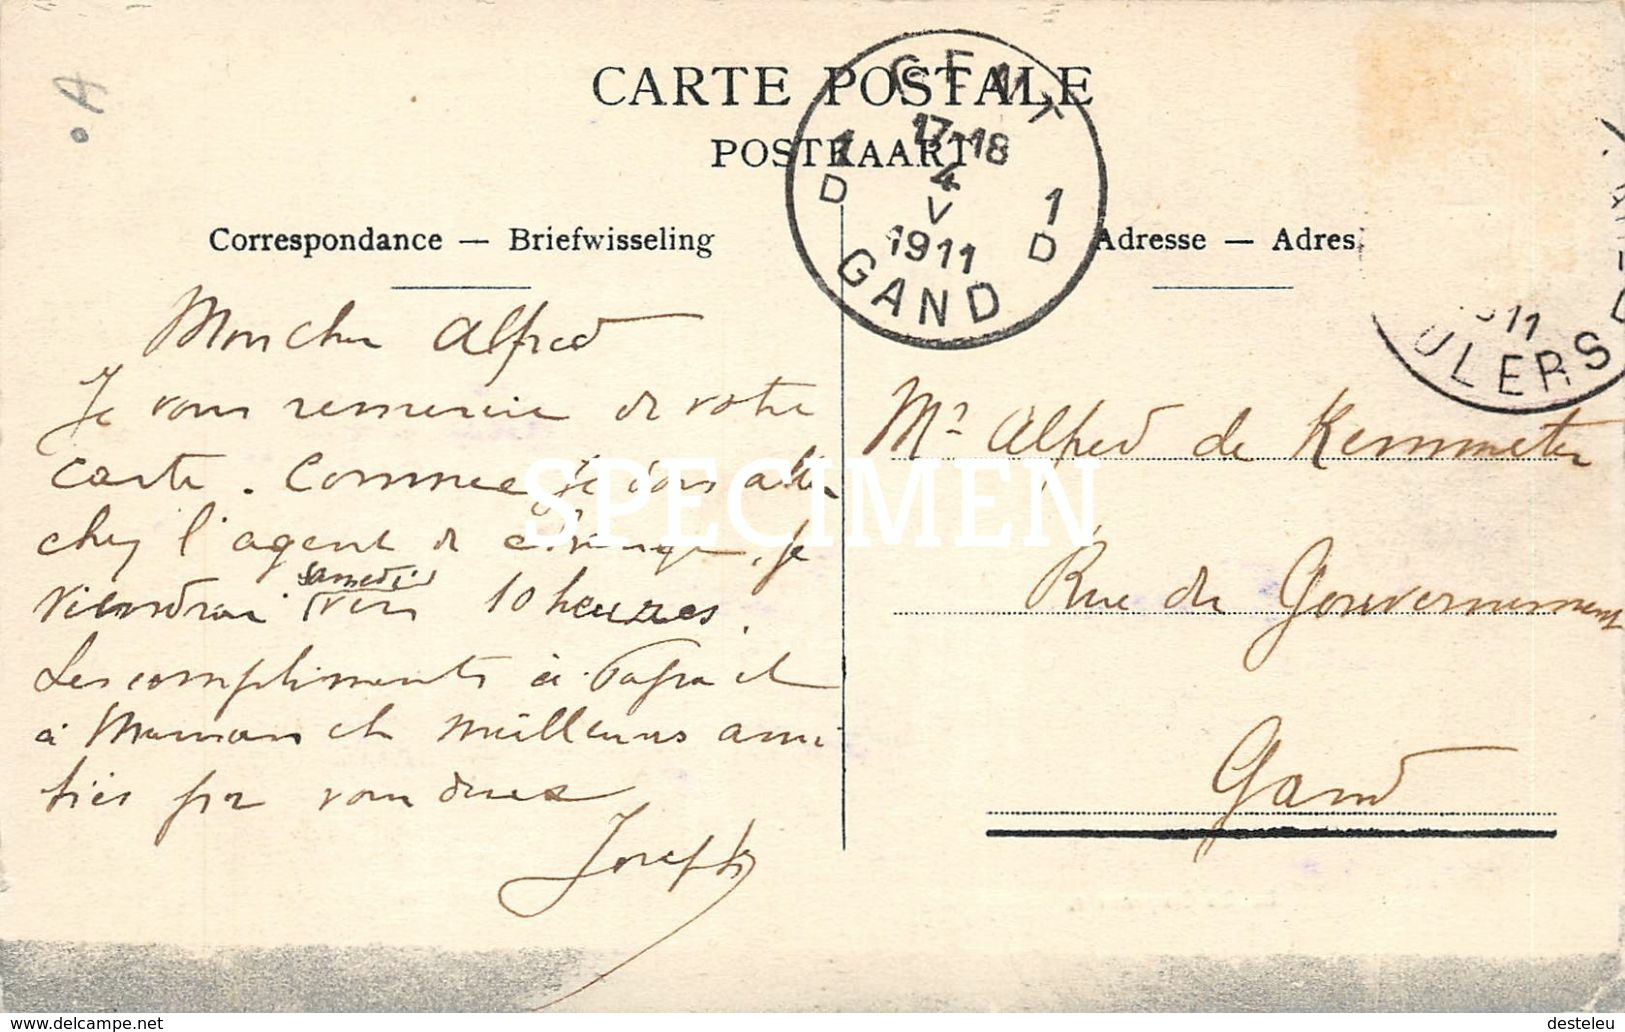 CARTE POSTALE
POSTKAART
Correspondance — Briefwisseling
Adresse — Adres
GENT
17-18
4
V
1911
1 D
1 D
GAND
11
ULERS
Mon cher Alfred
Je vous remercie de votre
carte. Comme je dois aller
chez l'agent de change, je
viendrai samedi vers 10 heures.
Les compliments à Papa et
à Maman et meilleures ami
tiés pr vous deux
Joseph
Mr Alfred de Kemmeter
Rue du Gouvernement
Gand
SPECIMEN
delcampe.net
desteleu